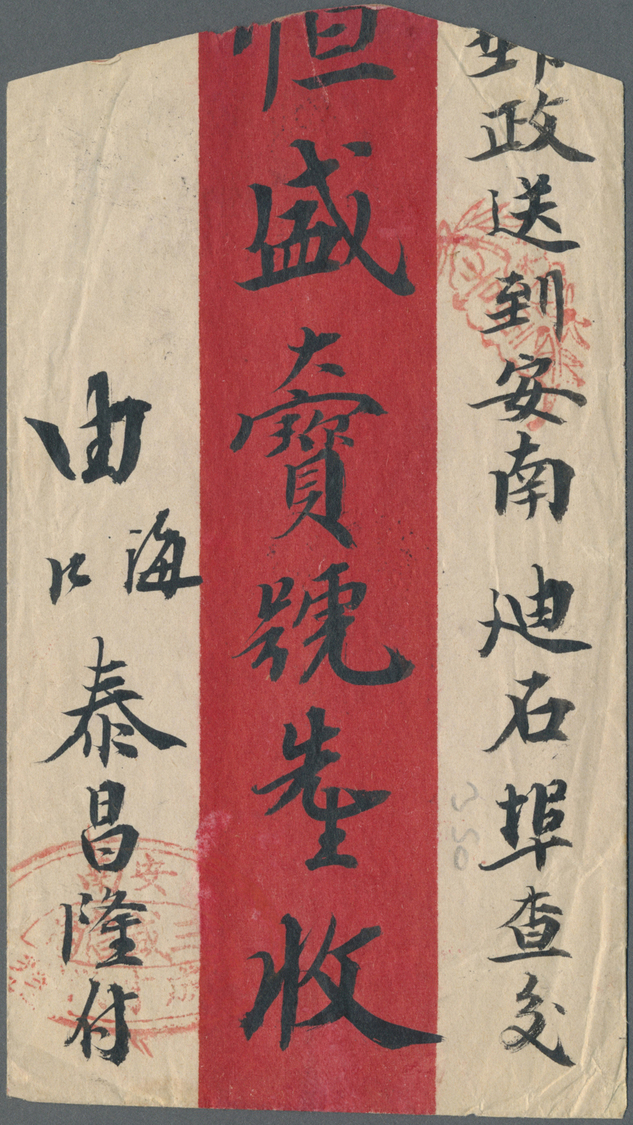 郵政送到安南迪石埠查交
恒盛大寶號先生收
由海口泰昌隆付
安南